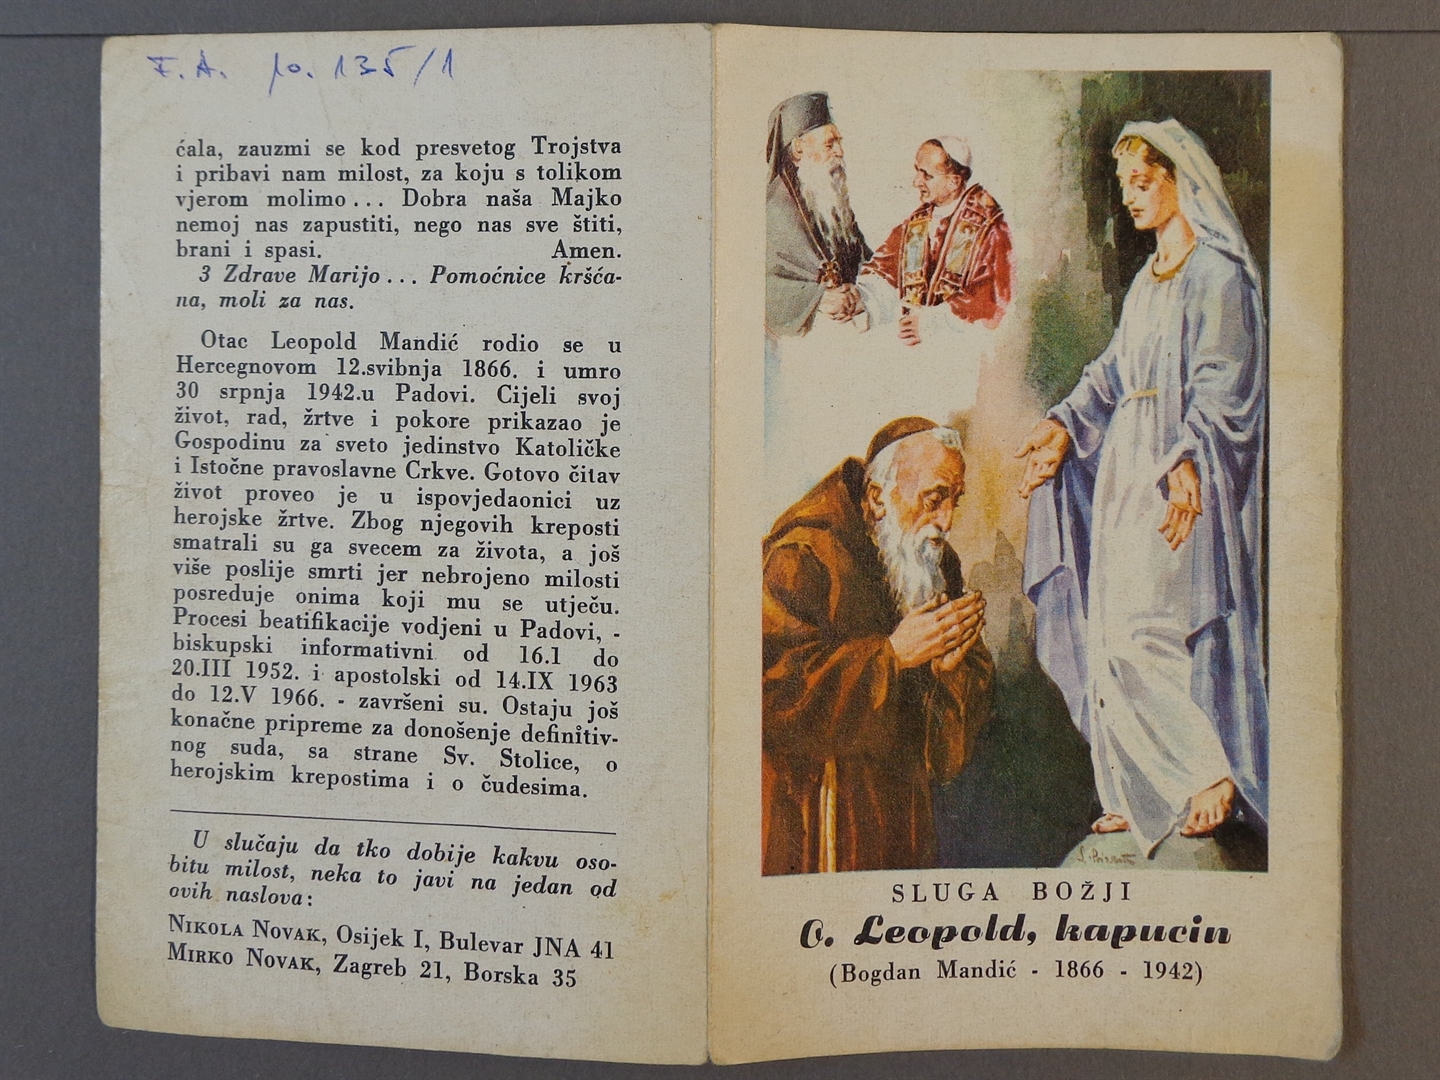 F. A. 10. 135/1
ćala, zauzmi se kod presvetog Trojstva
i pribavi nam milost, za koju s tolikom
vjerom molimo... Dobra naša Majko
nemoj nas zapustiti, nego nas sve štiti,
brani i spasi. Amen.
3 Zdrave Marijo... Pomoćnice kršća-
na, moli za nas.
Otac Leopold Mandić rodio se u
Hercegnovom 12.svibnja 1866. i umro
30 srpnja 1942.u Padovi. Cijeli svoj
život, rad, žrtve i pokore prikazao je
Gospodinu za sveto jedinstvo Katoličke
i Istočne pravoslavne Crkve. Gotovo čitav
život proveo je u ispovjedaonici uz
herojske žrtve. Zbog njegovih kreposti
smatrali su ga svecem za života, a još
više poslije smrti jer nebrojeno milosti
posreduje onima koji mu se utječu.
Procesi beatifikacije vodjeni u Padovi, -
biskupski informativni od 16.1 do
20.III 1952. i apostolski od 14.IX 1963
do 12.V 1966. - završeni su. Ostaju još
konačne pripreme za donošenje definitiv-
nog suda, sa strane Sv. Stolice, o
herojskim krepostima i o čudesima.
U slučaju da tko dobije kakvu oso-
bitu milost, neka to javi na jedan od
ovih naslova:
NIKOLA NOVAK, Osijek I, Bulevar JNA 41
MIRKO NOVAK, Zagreb 21, Borska 35
SLUGA BOŽJI
O. Leopold, kapucin
(Bogdan Mandić - 1866 - 1942)